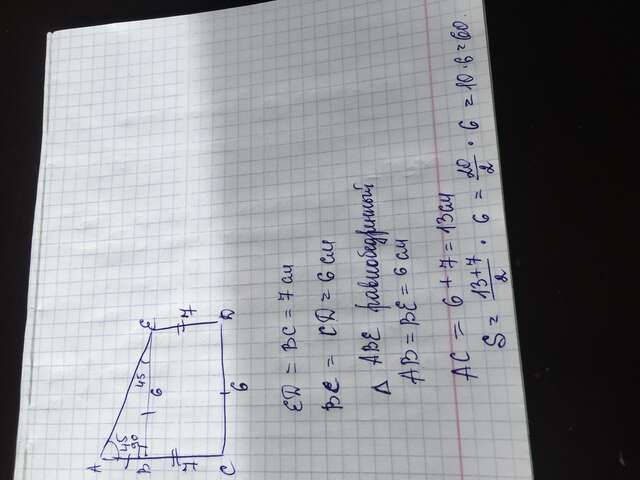 A
45
90
B
45
E
6
7
7
C
6
D
ED = BC = 7 см
BE = CD = 6 см
Δ ABE равнобедринный
AB = BE = 6 см
AC = 6 + 7 = 13 см
S = 13+7/2 · 6 = 20/2 · 6 = 10·6 = 60.